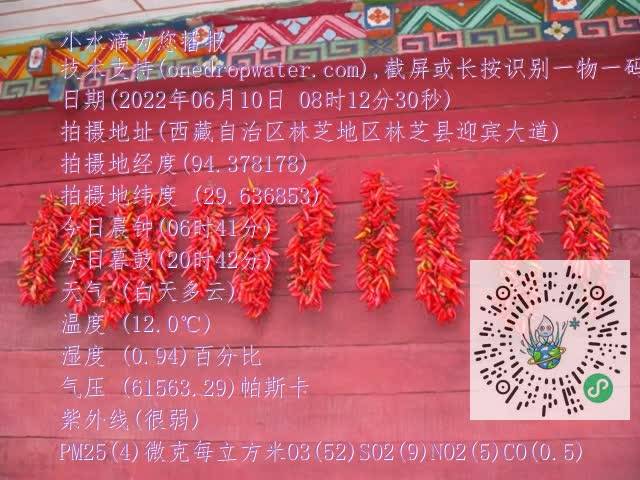 小水滴为您播报
技术支持(onedropwater.com),截屏或长按识别一物一码
日期(2022年06月10日 08时12分30秒)
拍摄地址(西藏自治区林芝地区林芝县迎宾大道)
拍摄地经度(94.378178)
拍摄地纬度 (29.636853)
今日晨钟(06时41分)
今日暮鼓(20时42分)
天气 (白天多云)
温度 (12.0℃)
湿度 (0.94)百分比
气压 (61563.29)帕斯卡
紫外线(很弱)
PM25(4)微克每立方米O3(52)SO2(9)NO2(5)CO(0.5)